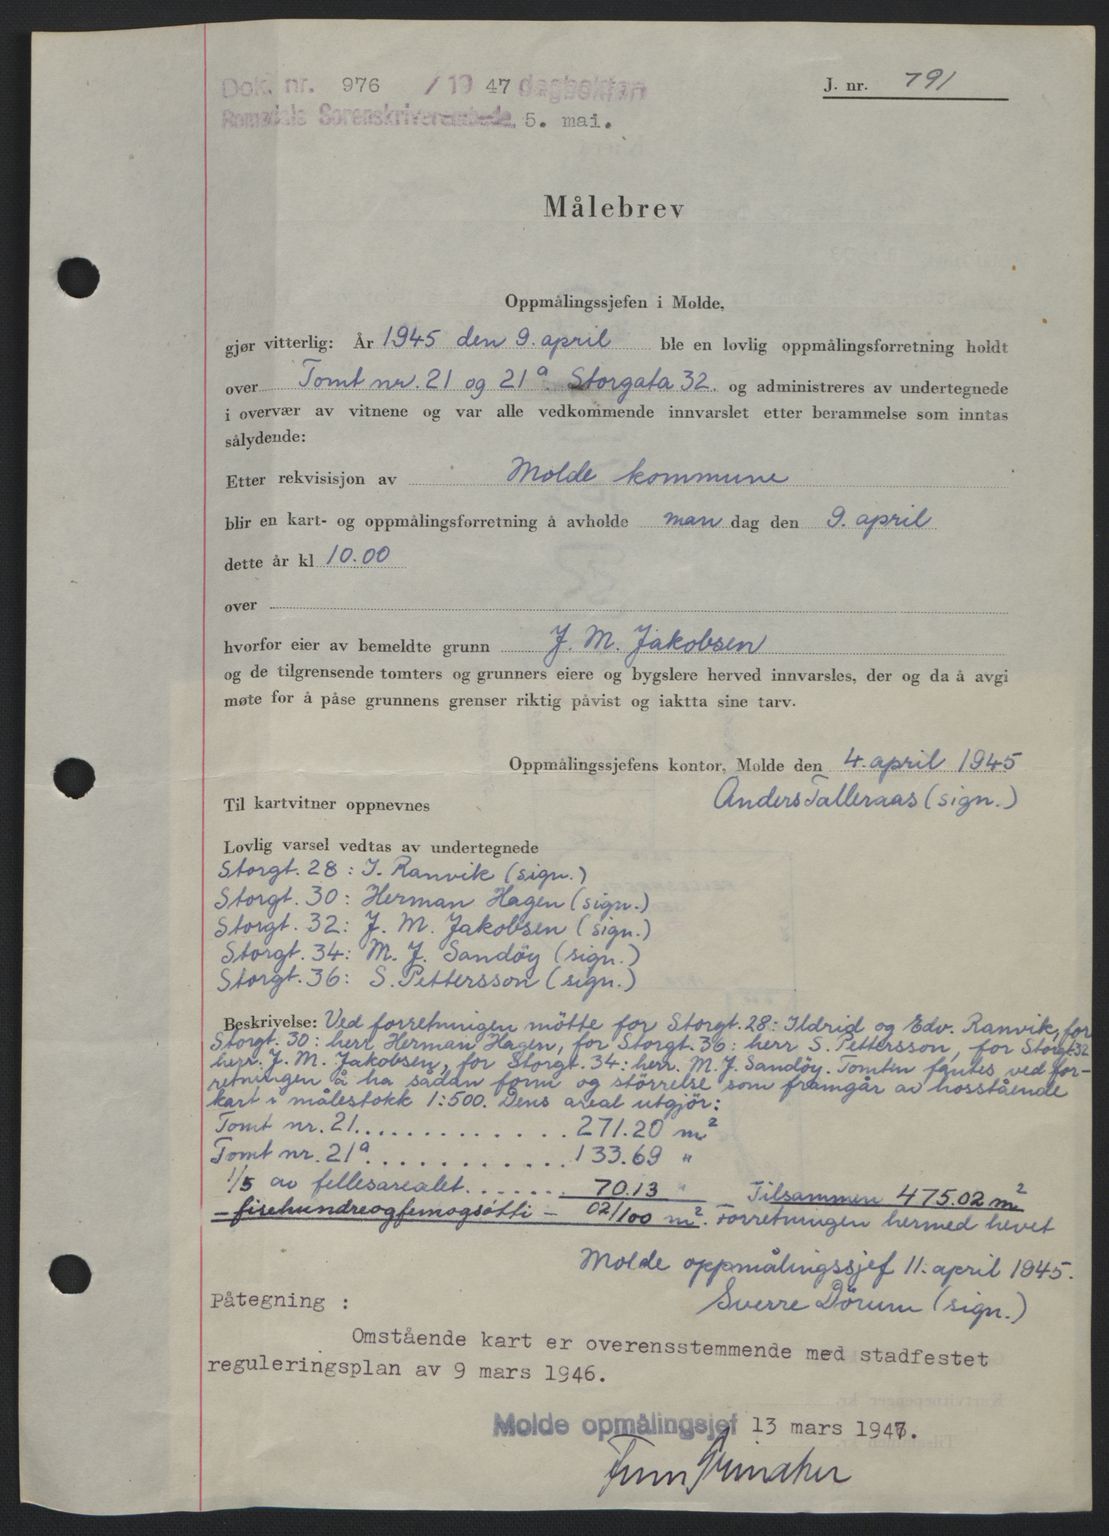 Dok. nr. 976 / 19 47 dagboktan
J. nr. 791
Romsdals Sorenskriverembede. 5. mai.
Målebrev
Oppmålingssjefen i Molde,
gjør vitterlig: År 1945 den 9. april ble en lovlig oppmålingsforretning holdt
over Tomt nr. 21 og 21a. Storgata 32. og administreres av undertegnede
i overvær av vitnene og var alle vedkommende innvarslet etter berammelse som inntas
sålydende:
Etter rekvisisjon av Molde kommune
blir en kart- og oppmålingsforretning å avholde man dag den 9. april
dette år kl 10.00
over
hvorfor eier av bemeldte grunn J. M. Jakobsen
og de tilgrensende tomters og grunners eiere og bygslere herved innvarsles, der og da å avgi
møte for å påse grunnens grenser riktig påvist og iaktta sine tarv.
Oppmålingssjefens kontor, Molde den 4. april 1945
Anders Talleraas (sign.)
Til kartvitner oppnevnes
Lovlig varsel vedtas av undertegnede
Storgt. 28: I. Ranvik (sign.)
Storgt. 30: Herman Hagen (sign.)
Storgt. 32: J. M. Jakobsen (sign.)
Storgt. 34: M. J. Sandöy (sign.)
Storgt. 36: S. Pettersson (sign.)
Beskrivelse: Ved forretningen mötte for Storgt. 28: Ildrid og Edv. Ranvik, for
Storgt. 30: herr Herman Hagen, for Storgt. 36: herr S. Pettersson, for Storgt 32
herr. J. M. Jakobsen, for Storgt. 34: herr. M. J. Sandöy. Tomten fantes ved for-
retningen å ha sådan form og störrelse som framgår av hosstående
kart i målestokk 1:500. Dens areal utgjör:
Tomt nr. 21. . . . . . . . . . . . . 271.20 m2
Tomt nr. 21a. . . . . . . . . . . . 133.69 "
1/5 av fellesarealet. . . . . . . 70.13 " Tilsammen 475.02 m2
- firehundreogfemogsötti - 02/100 m2. Forretningen hermed hevet
Molde oppmålingssjef 11. april 1945.
Sverre Dörum (sign.)
Påtegning :
Omstående kart er overensstemmende med stadfestet
reguleringsplan av 9 mars 1946.
Molde opmålingsjef 13 mars 1947.